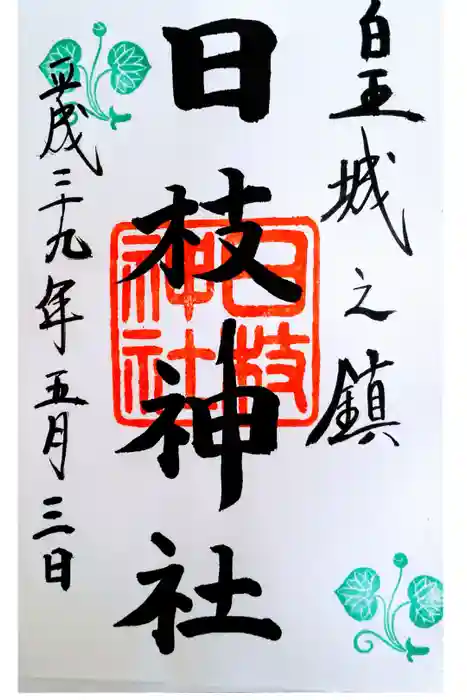 皇城之鎮
日枝神社
日枝神社
平成二十九年五月三日